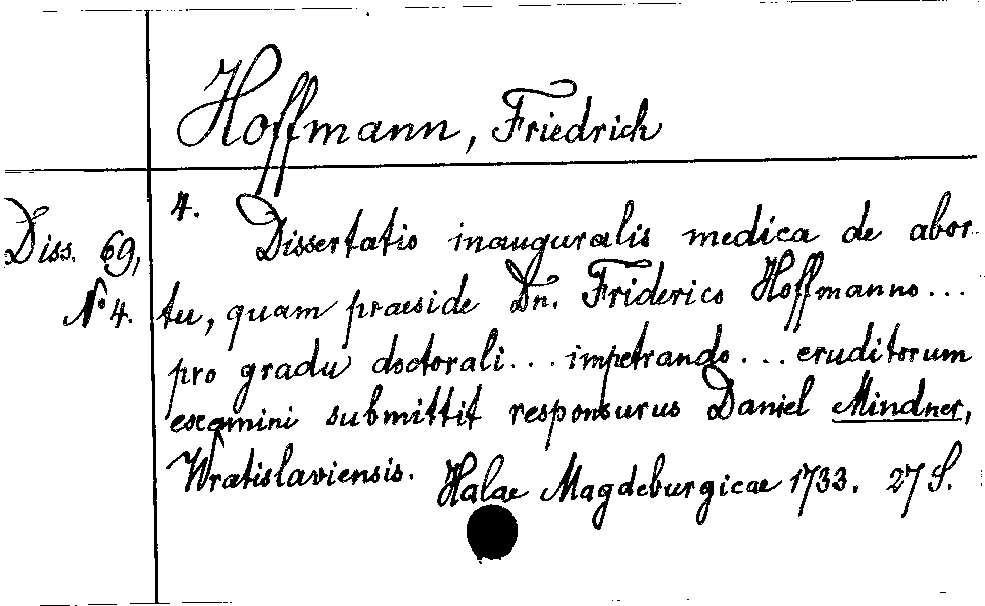 Hoffmann, Friedrich
4.
Diss. 69, Dissertatio inauguralis medica de abor-
No 4. tu, quam praeside Dn. Friderico Hoffmanno...
pro gradu doctorali... impetrando... eruditorum
examini submittit responsurus Daniel Mindner,
Wratislaviensis. Halae Magdeburgicae 1733. 27 S.